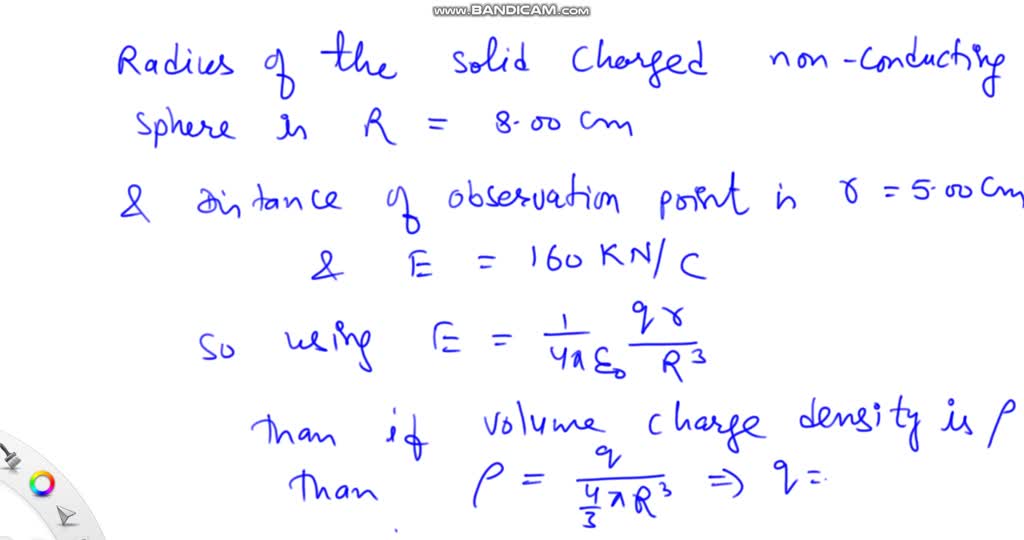 www.BANDICAM.com
Radius of the solid charged non-conducting
sphere is R = 8.00 cm
& Distance of observation point is r = 5.00 cm
& E = 160 KN/C
So using E = 1/4πε₀ qr/R³
than if volume charge density is ρ
than ρ = q/(4/3 πR³) ⇒ q =